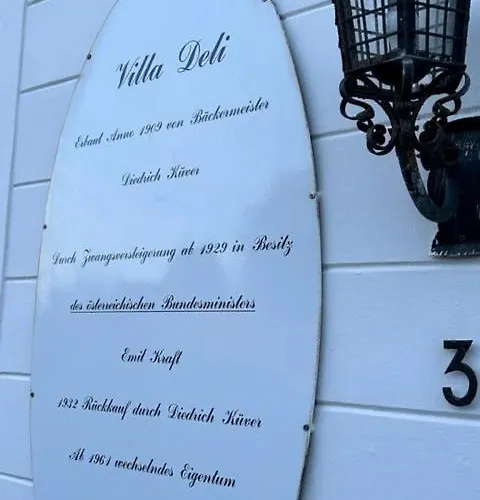 Villa Deli
Erbaut Anno 1909 von Bäckermeister
Diedrich Küver
Durch Zwangsversteigerung ab 1929 in Besitz
des österreichischen Bundesministers
Emil Kraft
1932 Rückkauf durch Diedrich Küver
Ab 1961 wechselndes Eigentum
3